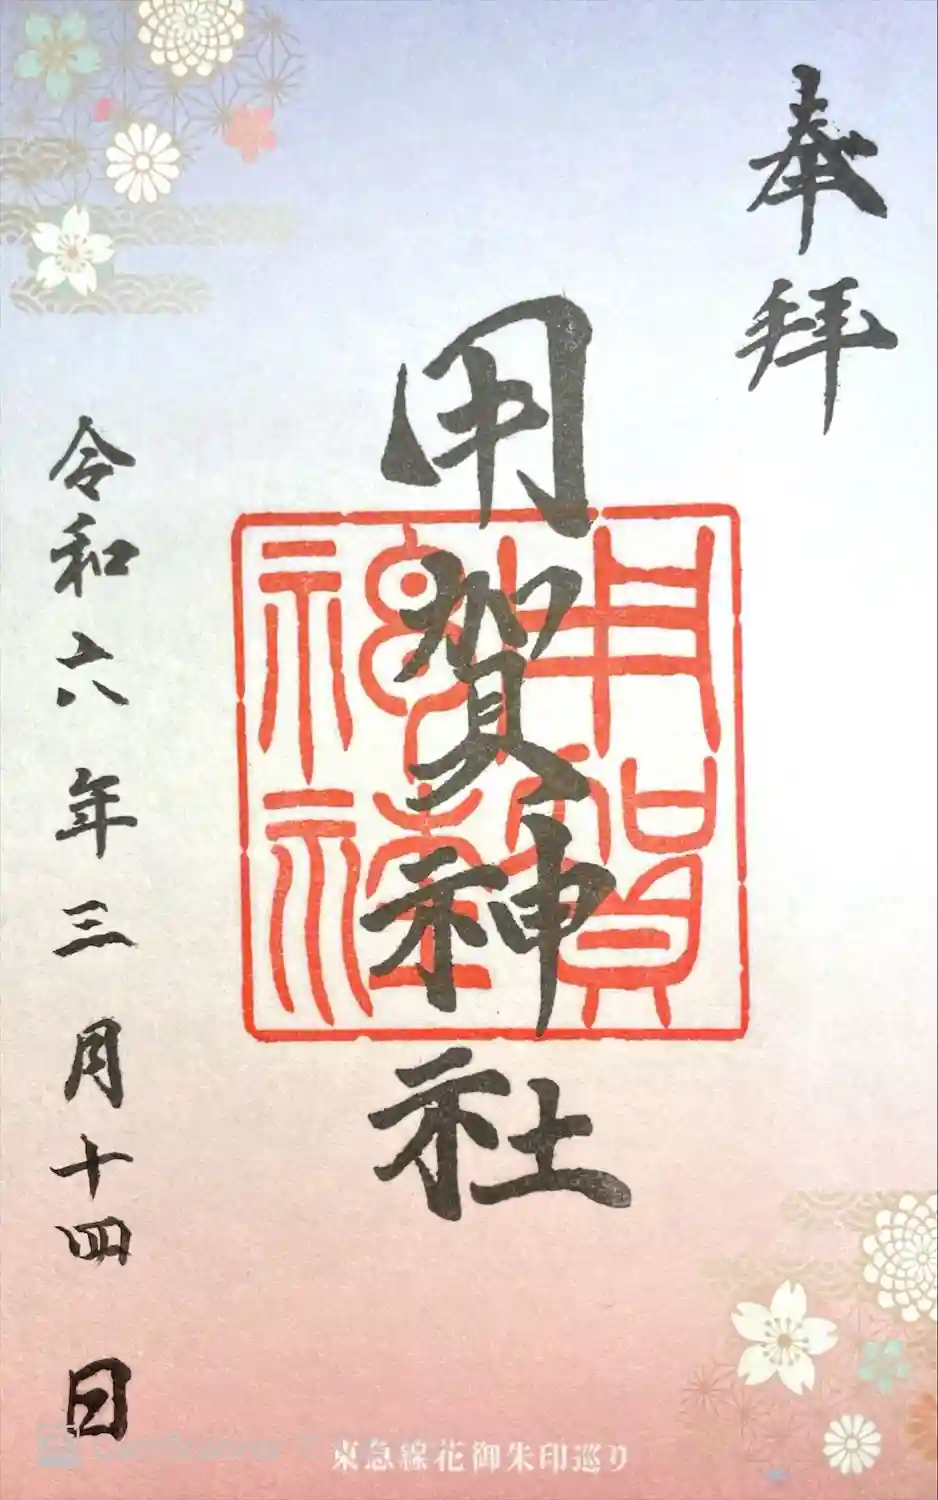 奉拝
用賀神社
用賀神社
令和六年三月十四日
東急線花御朱印巡り